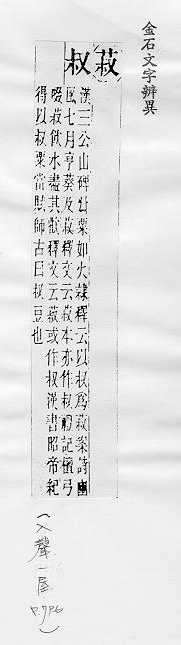 金石文字辨異
菽 叔
漢三公山碑叔粟如火隸釋云以叔爲菽案詩豳
風七月亨葵及菽釋文云菽本亦作叔禮記檀弓
啜菽飲水盡其歡釋文云菽或作叔漢書昭帝紀
得以叔粟當賦師古曰叔豆也
(入聲一屋 P.796)